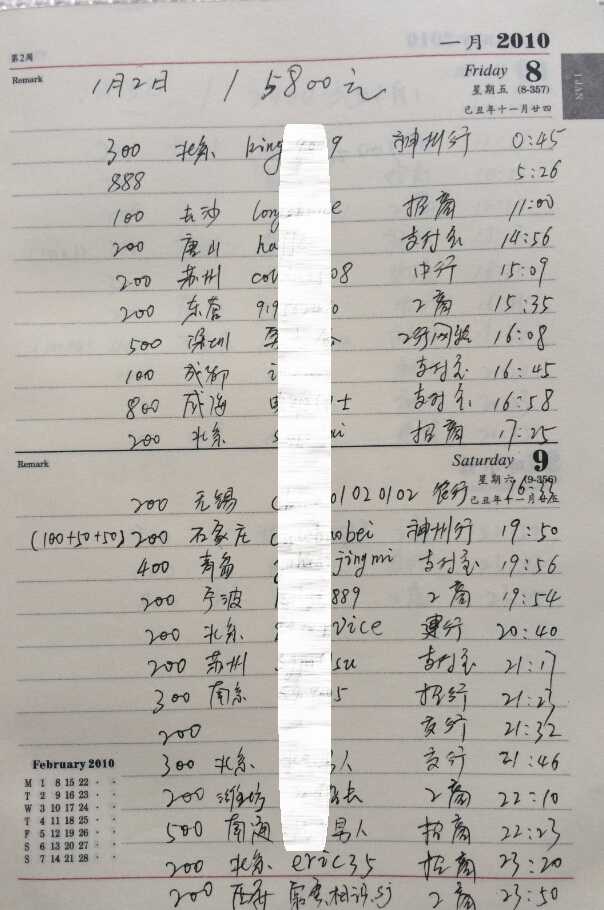 一月 2010
第2周
Remark
Friday 8
星期五 (8-357)
己丑年十一月廿四
1 JAN
1月2日 15800元
300 北京 king 9 神州行 0:45
888 5:26
100 长沙 long e 招商 11:00
200 唐山 ha 支付宝 14:56
200 苏州 co 08 中行 15:09
200 东营 919 0 工商 15:35
500 深圳 工行网银 16:08
100 成都 支付宝 16:45
800 威海 士 支付宝 16:58
200 北京 s i 招商 17:25
Remark
Saturday 9
星期六 (9-356)
己丑年十一月廿五
200 无锡 01020102 农行
(100+50+50) 200 石家庄 bei 神州行 19:50
400 青岛 jingmi 支付宝 19:56
200 宁波 889 工商 19:54
200 北京 vice 建行 20:40
200 苏州 su 支付宝 21:17
300 南京 5 招行 21:23
200 交行 21:32
300 北京 人 交行 21:46
200 潍坊 工商 22:10
500 南通 男人 招商 22:23
200 北京 eric35 招商 23:20
200 相识 sj 工商 23:50
February 2010
M 1 8 15 22 · ·
T 2 9 16 23 · ·
W 3 10 17 24 · ·
T 4 11 18 25 · ·
F 5 12 19 26 · ·
S 6 13 20 27 · ·
S 7 14 21 28 · ·